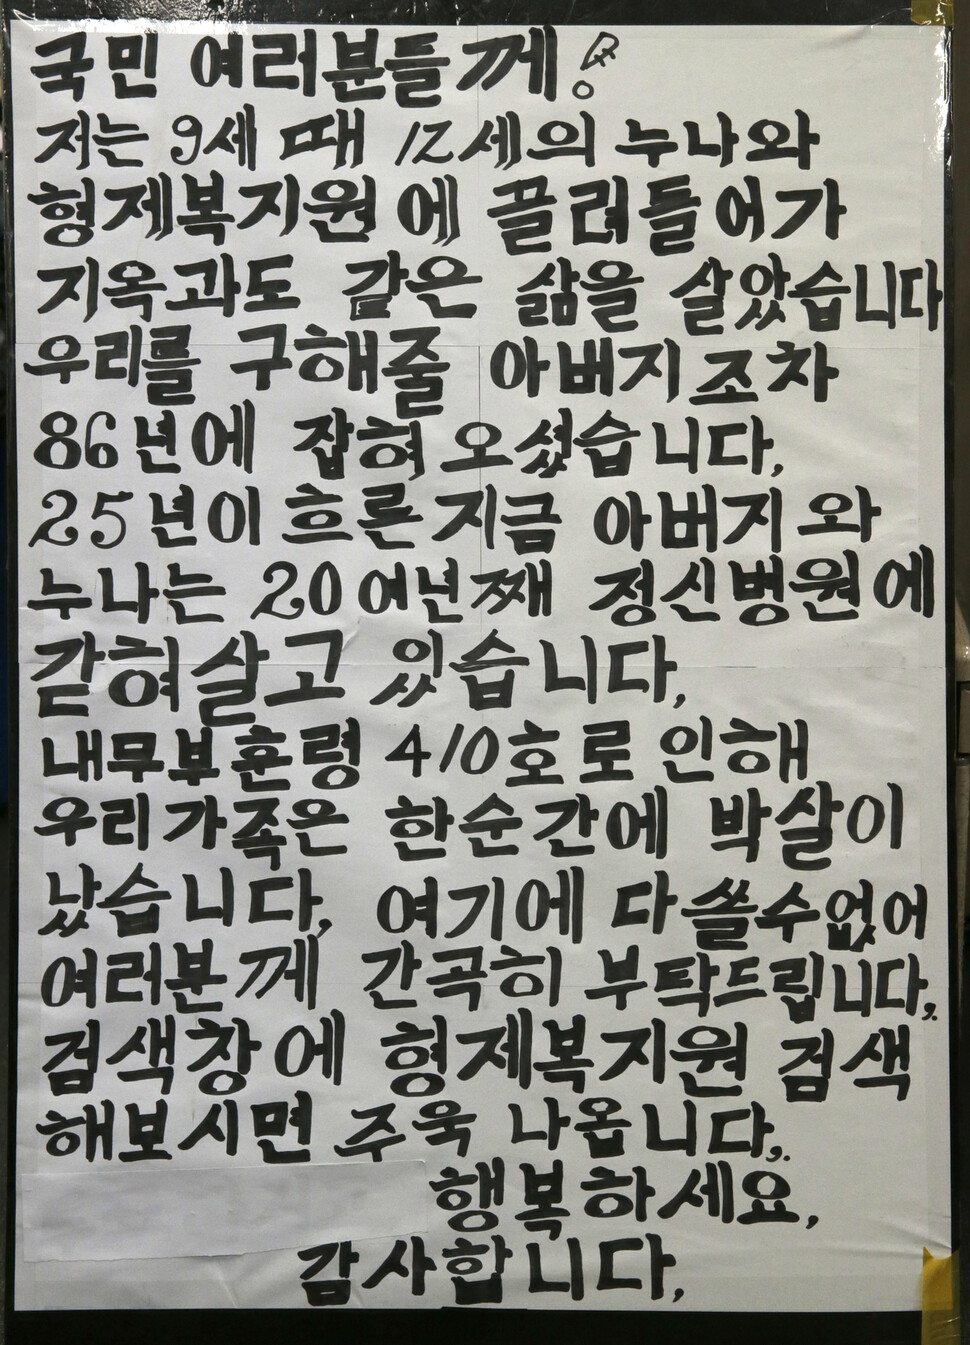 국민 여러분들께!
저는 9세 때 12세의 누나와
형제복지원에 끌려들어가
지옥과도 같은 삶을 살았습니다
우리를 구해줄 아버지조차
86년에 잡혀 오셨습니다,
25년이 흐른 지금 아버지와
누나는 20여년째 정신병원에
갇혀살고 있습니다,
내무부훈령 410호로 인해
우리가족은 한순간에 박살이
났습니다, 여기에 다 쓸수없어
여러분께 간곡히 부탁드립니다,
검색창에 형제복지원 검색
해보시면 주욱 나옵니다,
행복하세요,
감사합니다,